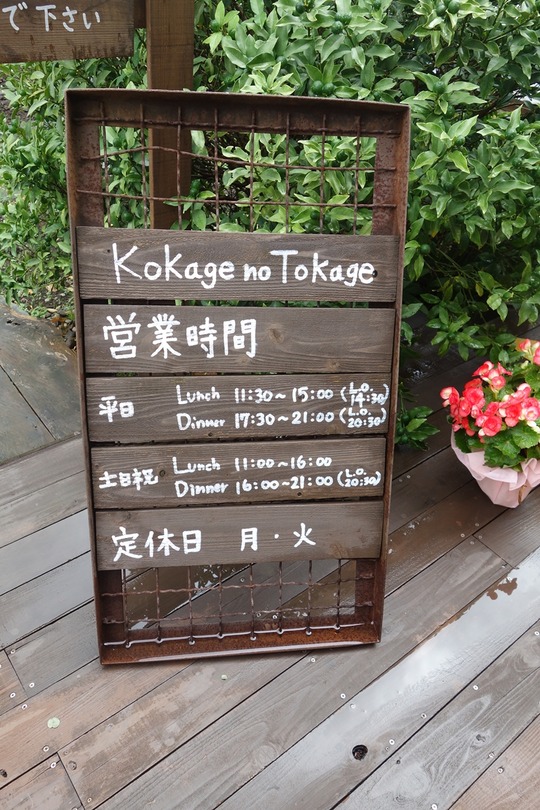 で下さい
Kokage no Tokage
営業時間
平日 Lunch 11:30~15:00 (L.O. 14:30)
Dinner 17:30~21:00 (L.O. 20:30)
土日祝 Lunch 11:00~16:00
Dinner 16:00~21:00 (L.O. 20:30)
定休日 月・火